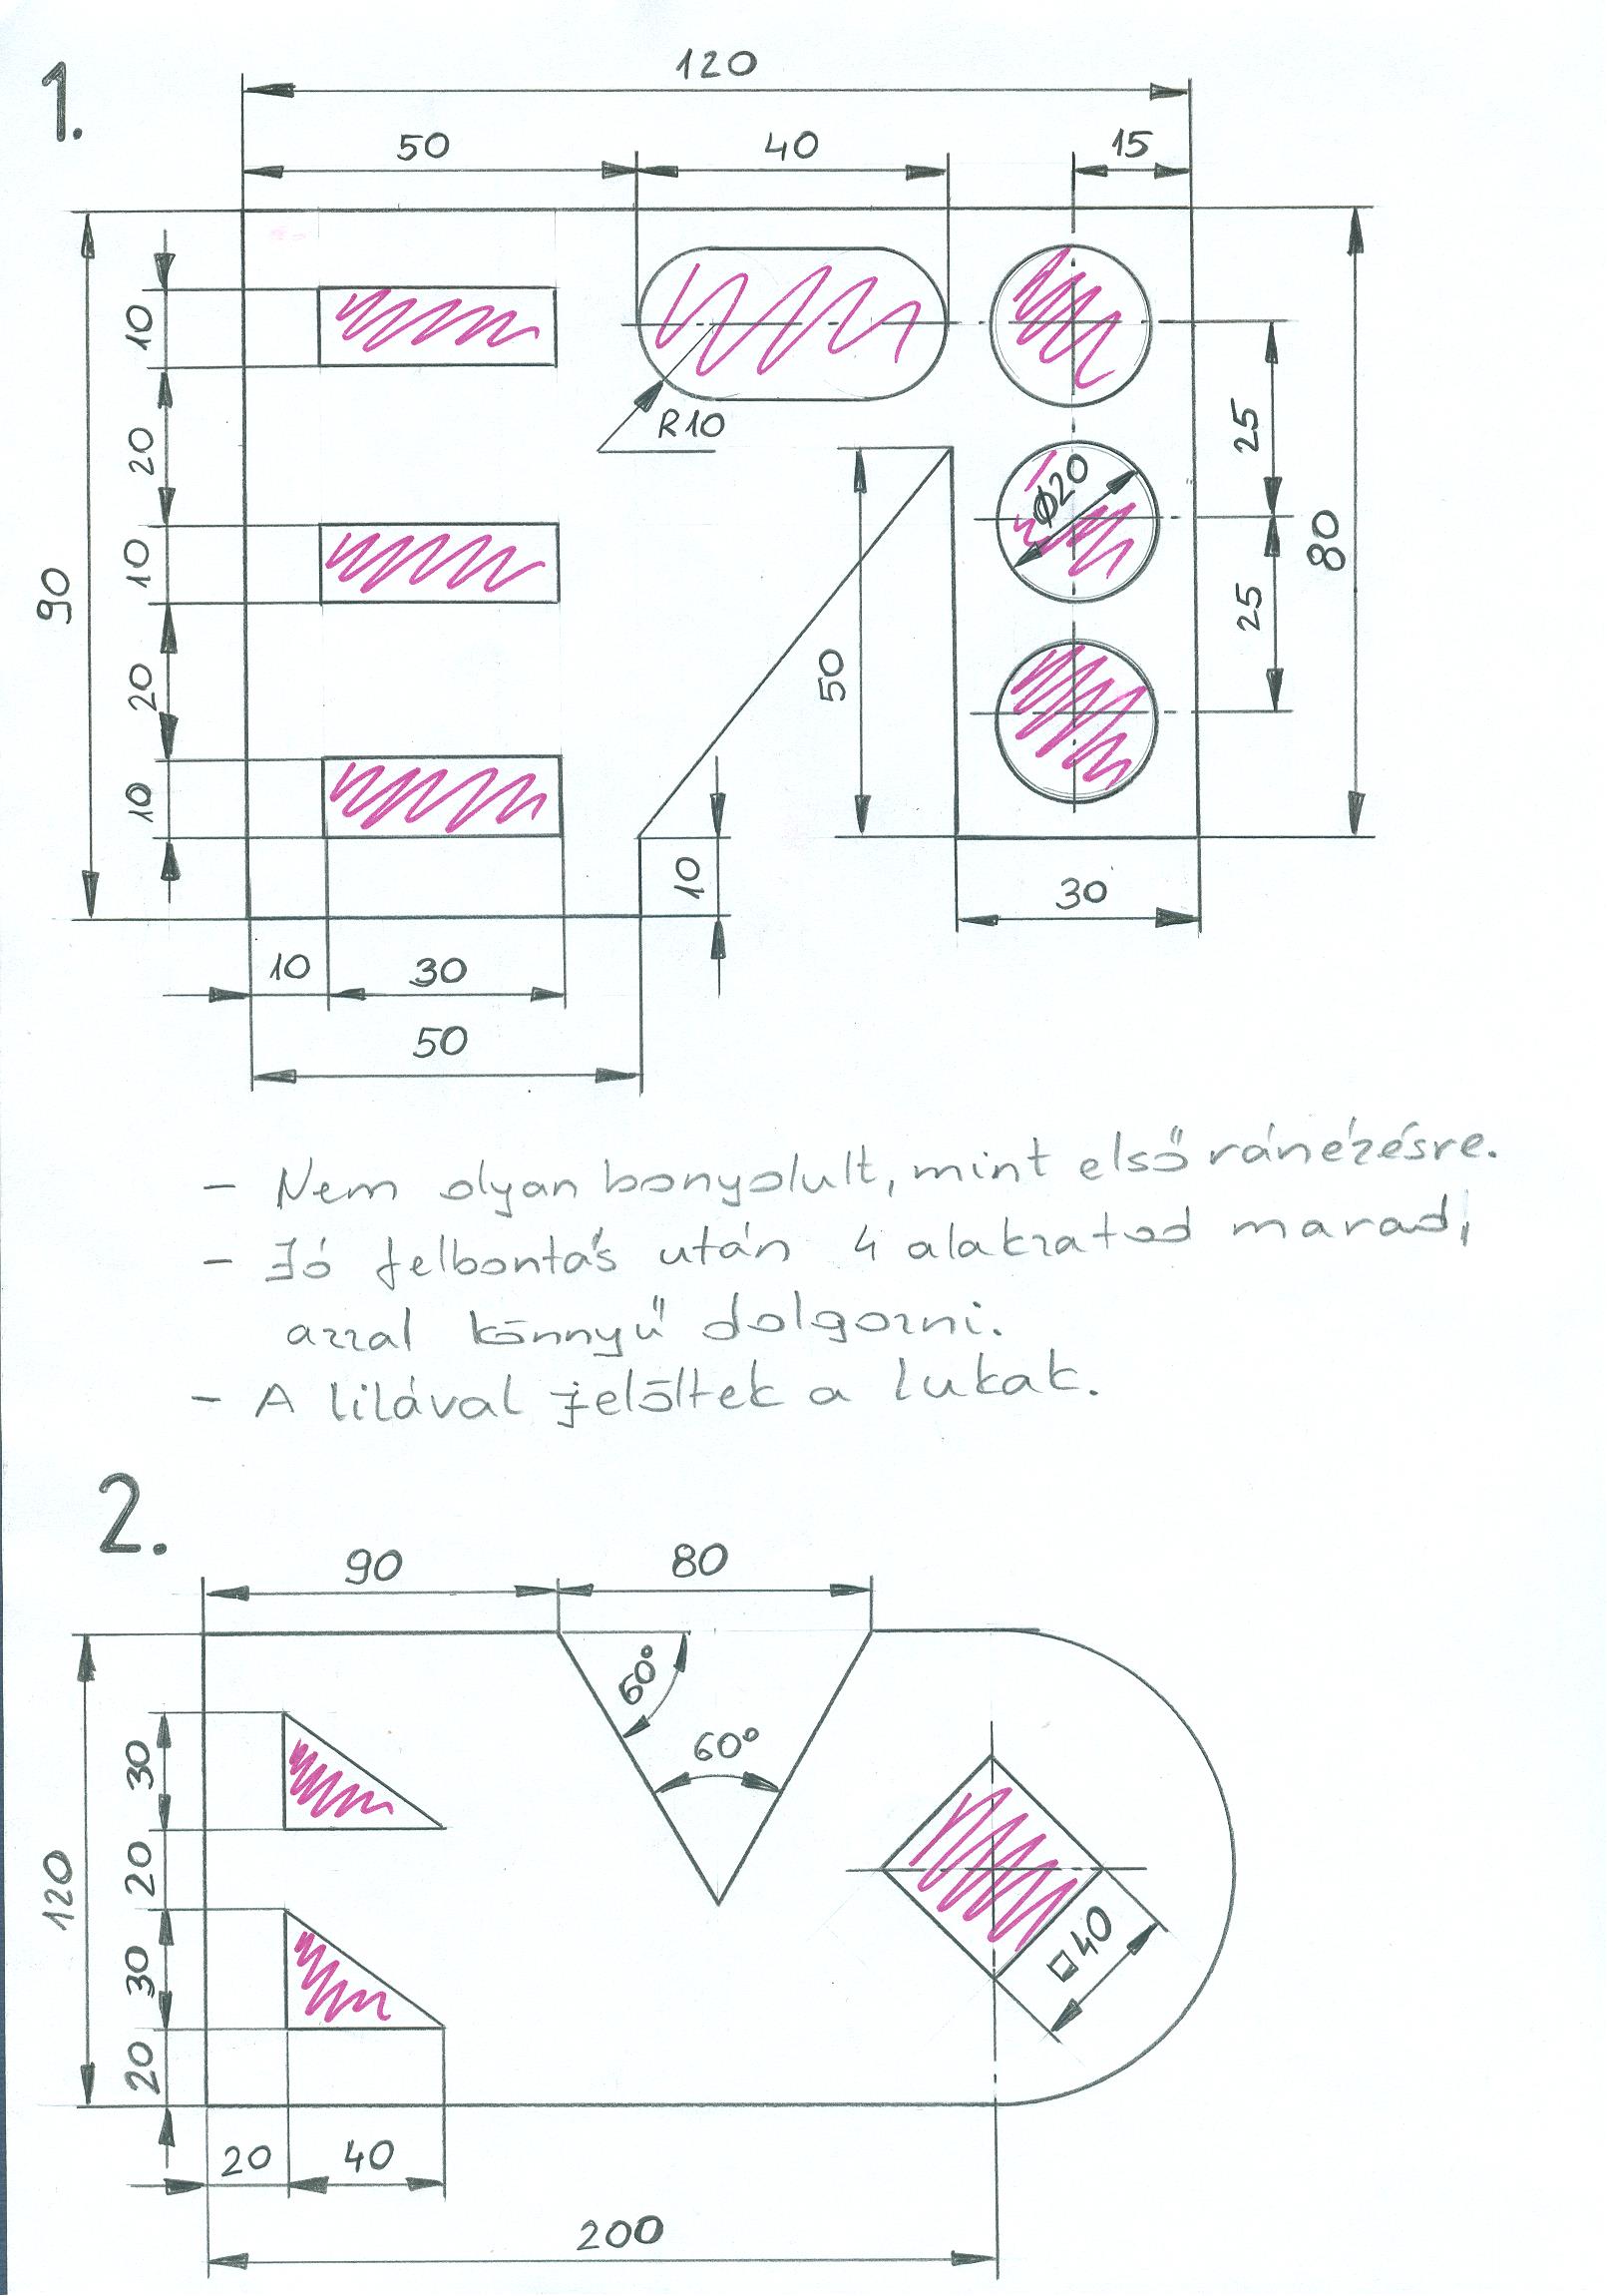 1.
120
50 40 15
10
20
10
20
10
90
R10
Ø20
25
25
80
50
10
30
10 30
50
- Nem olyan bonyolult, mint első ránézésre.
- Jó felbontás után 4 alakzatod marad,
azzal könnyű dolgozni.
- A lilával jelöltek a lukak.
2.
90 80
60°
60°
30
20
30
20
120
□40
20 40
200